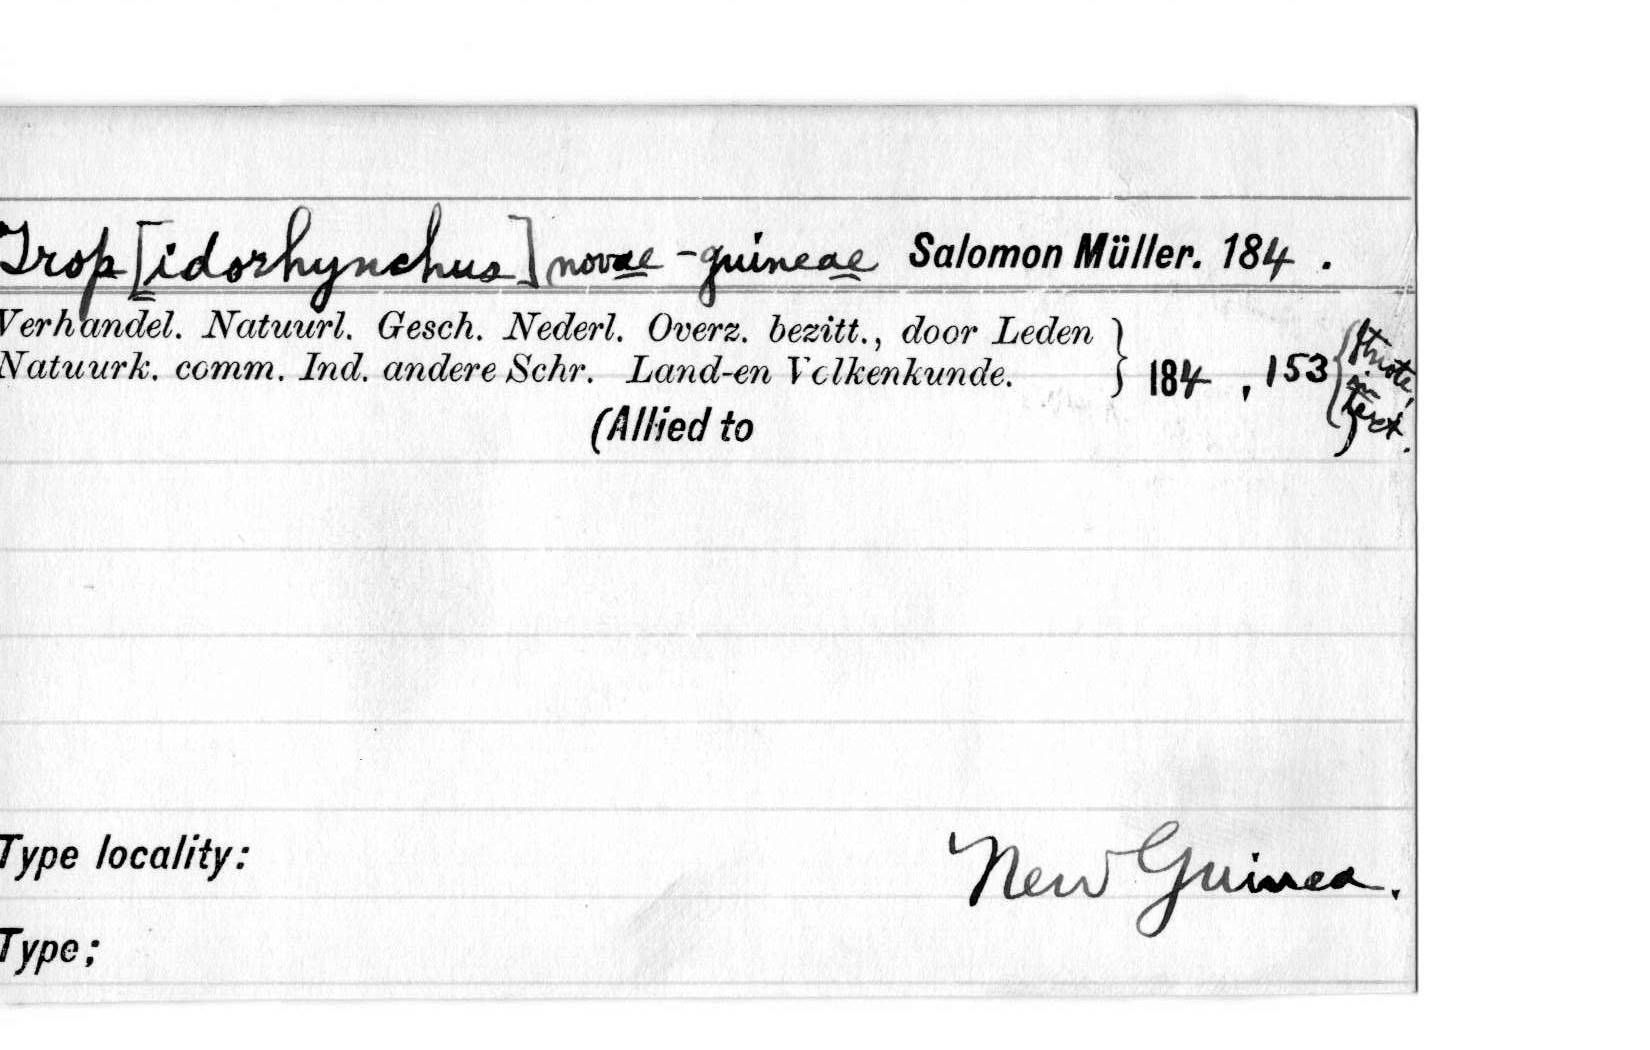 Trop[idorhynchus] novae-guineae Salomon Müller. 184 .
Verhandel. Natuurl. Gesch. Nederl. Overz. bezitt., door Leden
Natuurk. comm. Ind. andere Schr. Land-en Volkenkunde. } 184 , 153 { in text.
(Allied to
Type locality: New Guinea.
Type;